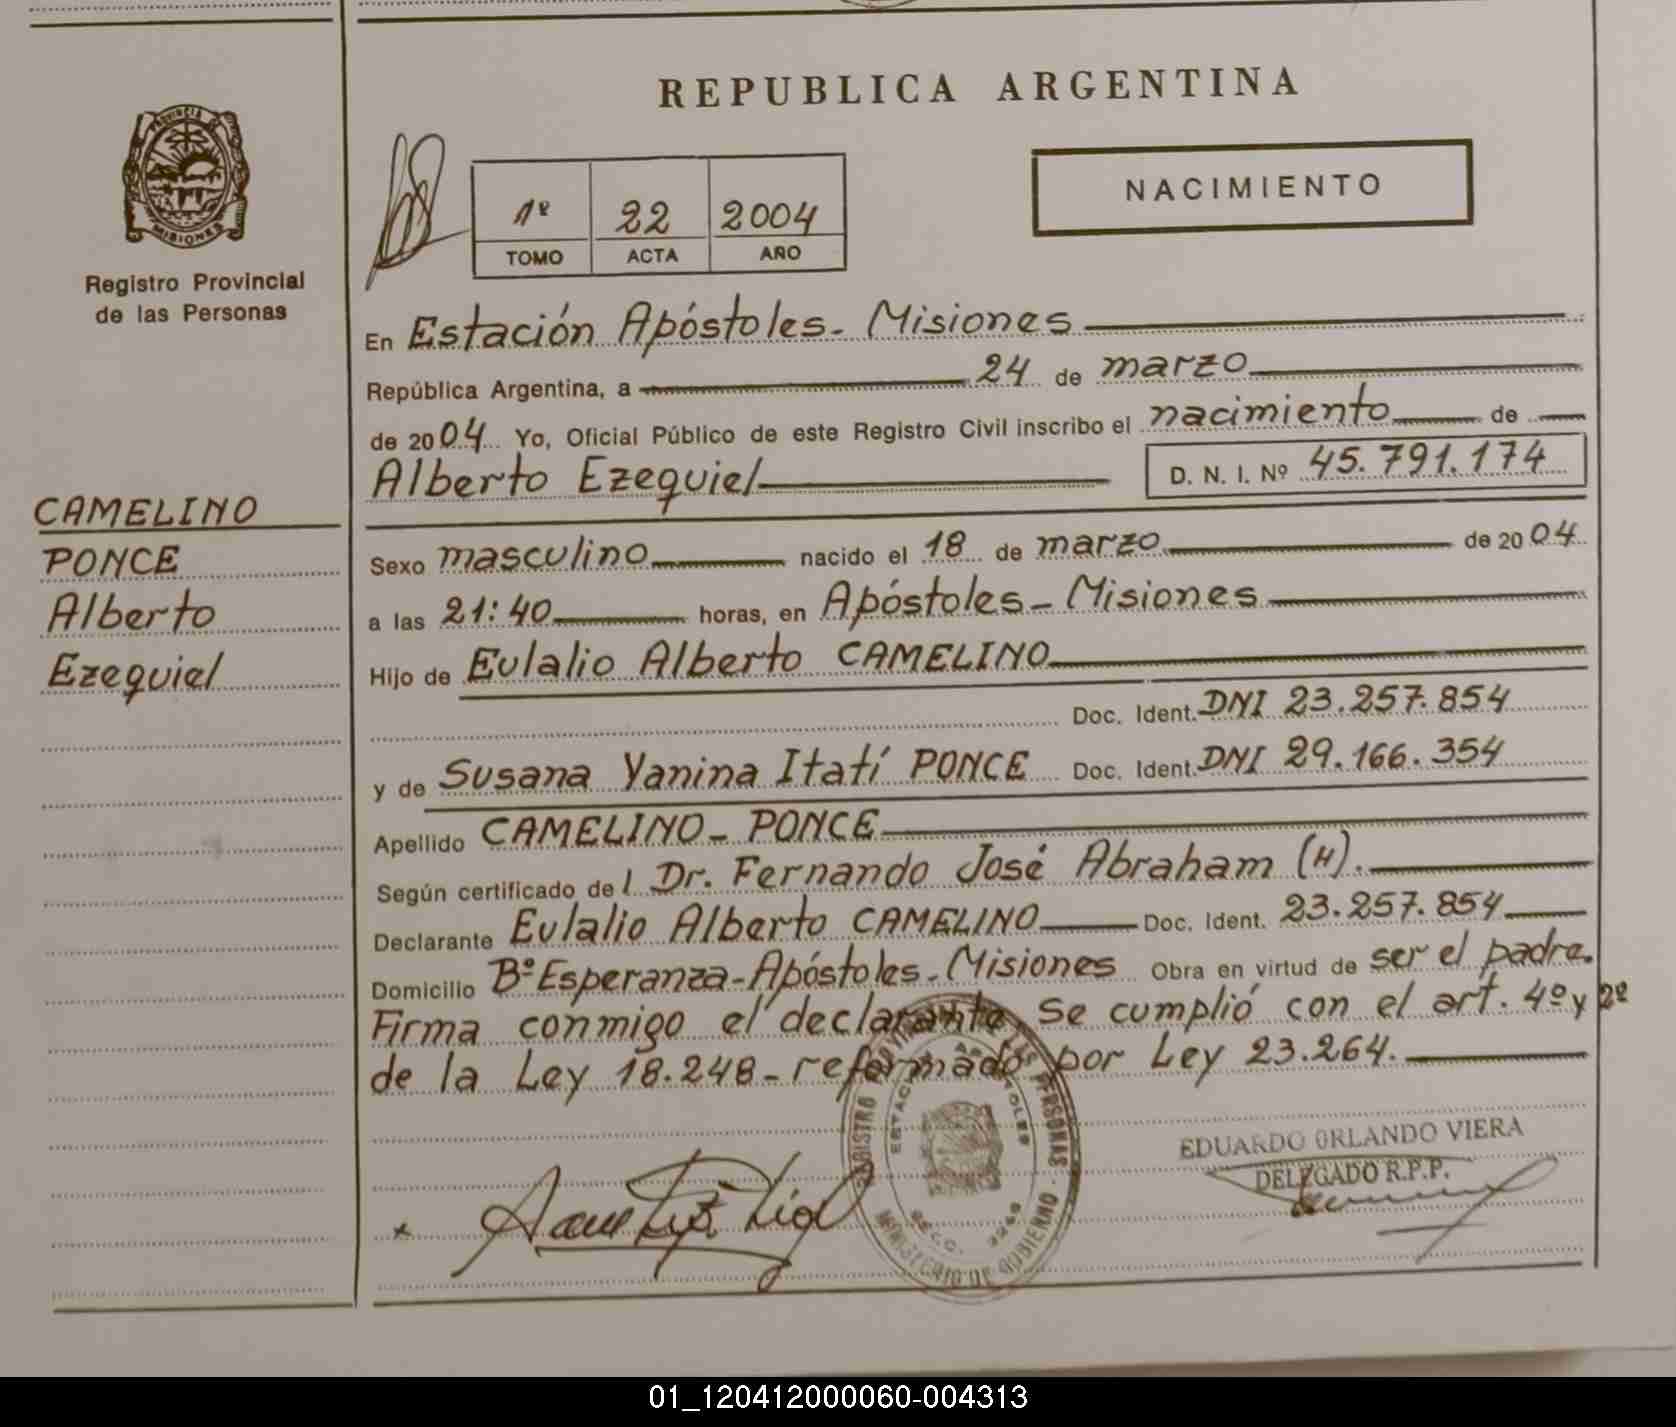 REPUBLICA ARGENTINA
PROVINCIA DE
MISIONES
Registro Provincial
de las Personas
1º 22 2004
TOMO ACTA AÑO
NACIMIENTO
En Estación Apóstoles- Misiones
República Argentina, a 24 de marzo
de 2004 Yo, Oficial Público de este Registro Civil inscribo el nacimiento de
Alberto Ezequiel D. N. I. Nº 45.791.174
CAMELINO
PONCE
Alberto
Ezequiel
Sexo masculino nacido el 18 de marzo de 2004
a las 21:40 horas, en Apóstoles- Misiones
Hijo de Eulalio Alberto CAMELINO
Doc. Ident. DNI 23.257.854
y de Susana Yanina Itatí PONCE Doc. Ident. DNI 29.166.354
Apellido CAMELINO- PONCE
Según certificado del Dr. Fernando José Abraham (H).
Declarante Eulalio Alberto CAMELINO Doc. Ident. 23.257.854
Domicilio Bº Esperanza-Apóstoles-Misiones Obra en virtud de ser el padre.
Firma conmigo el declarante Se cumplió con el art. 4º y 2º
de la Ley 18.248- reformado por Ley 23.264.
REGISTRO PROVINCIAL DE LAS PERSONAS
ESTACION APOSTOLES
MINISTERIO DE GOBIERNO
EDUARDO ORLANDO VIERA
DELEGADO R.P.P.
01_120412000060-004313